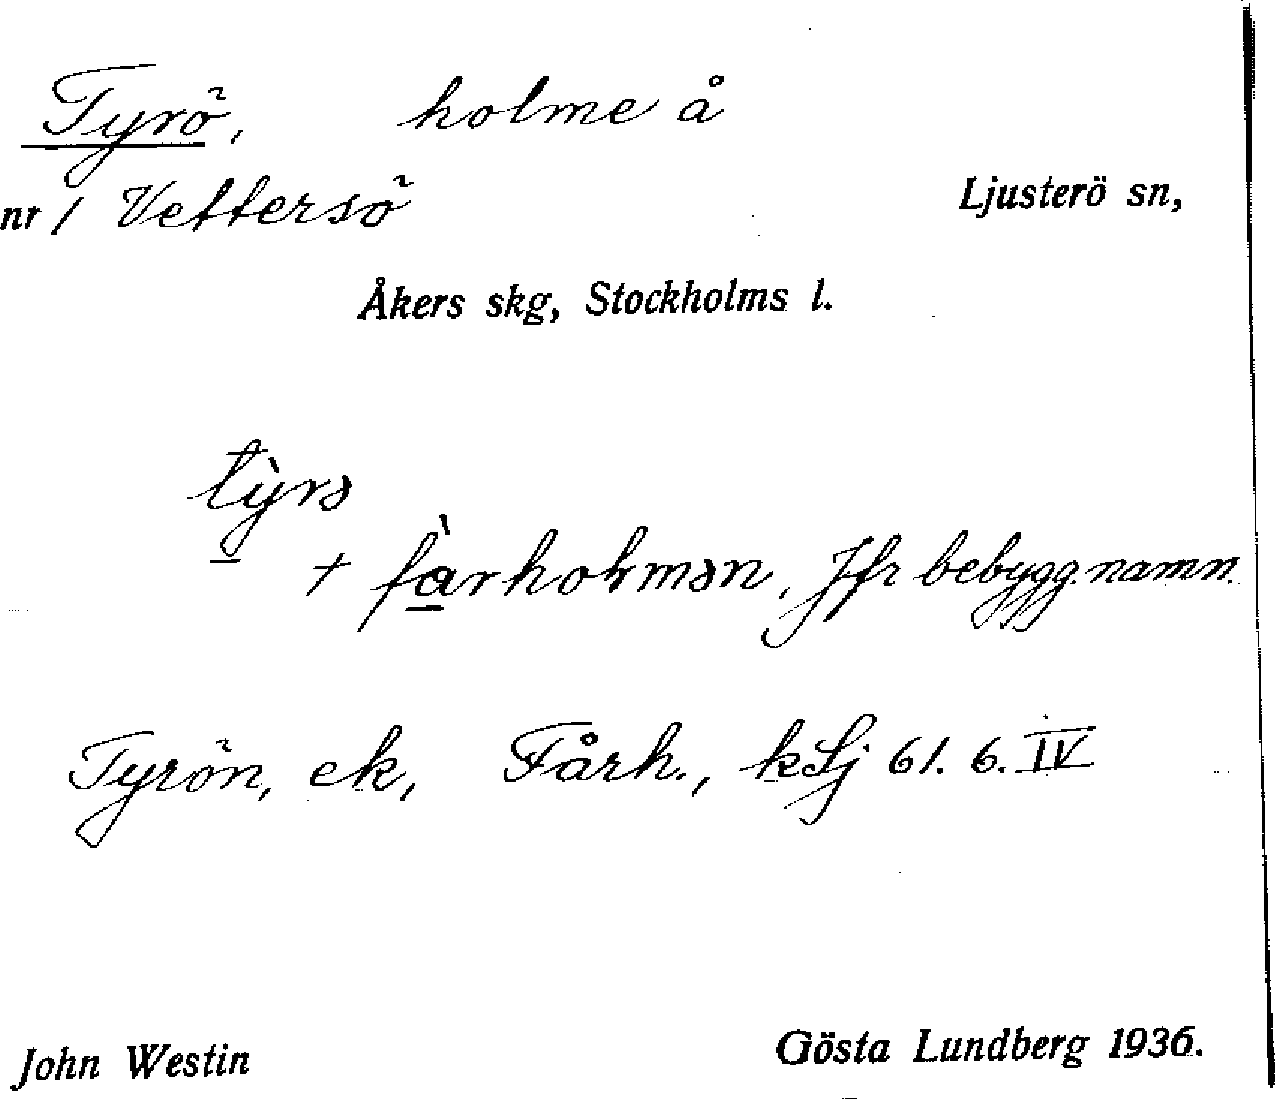 Tyrö, holme å
nr 1 Vettersö
Ljusterö sn,
Åkers skg, Stockholms l.
tỳrə
+ fàrholmən, Jfr bebygg.namn.
Tyrön, ek, Fårh., kLj 61. 6. IV
John Westin
Gösta Lundberg 1936.